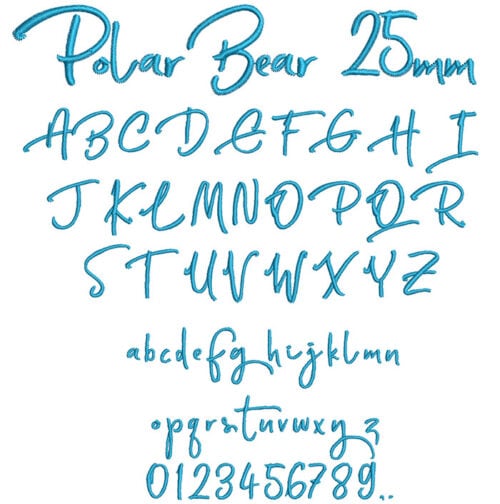 Polar Bear 25mm
ABCDEFGHI
JKLMNOPQR
STUVWXYZ
abcdefghijklmn
opqrstuvwxyz
0123456789..